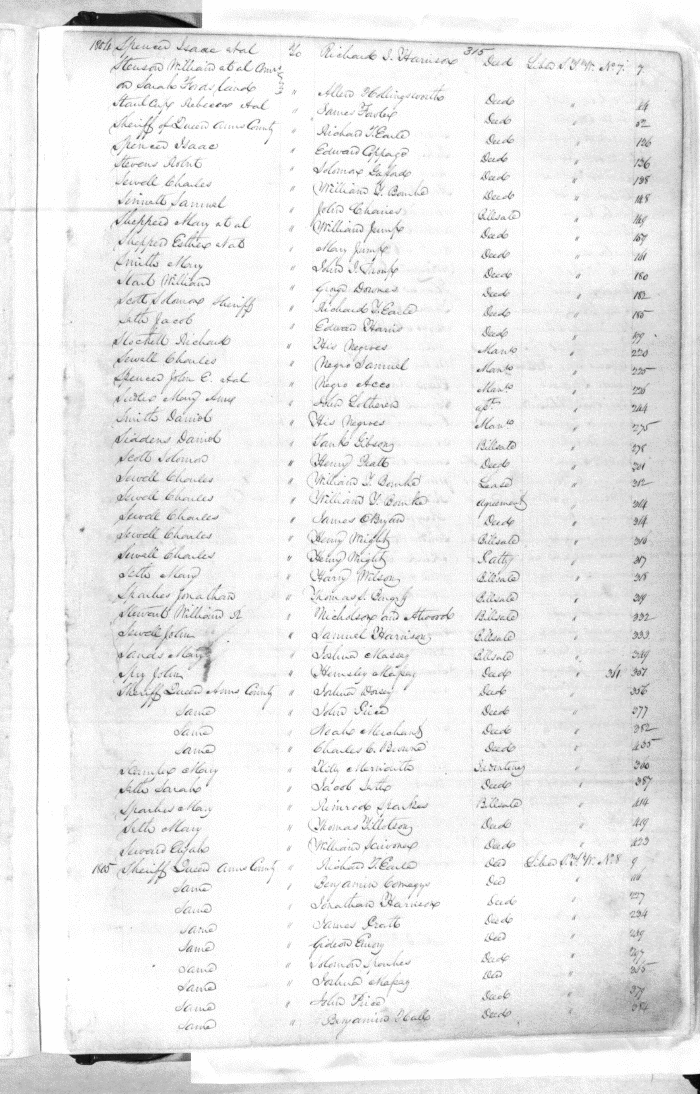 315
1804 Spencer Isaac et al to Richard I. Harrison Deed Liber S.T.W. No 7. 7
Stenson William et al Com
on Sarah Fords land " Allen Hollingsworth Deed " 44
Start Rebecca et al " James Fowler Deed " 52
Sheriff of Queen Anns County " Richard T. Earle Deed " 126
Spencer Isaac " Edward Coppage Deed " 136
Stevens Robt " Solomon Deed " 138
Sewell Charles " William Y. Bourke Deed " 148
Sinnott Samuel " John Chaires Billsale " 149
Sheppard Mary et al " William Jump Deed " 157
Shepperd Esther " Mary Jump Deed " 161
Smith Mary " John I. Troup Deed " 180
Start William " George Downes Deed " 182
Scott Solomon Sheriff " Richard T. Earle Deed " 185
Seth Jacob " Edward Harris Deed "
Stockett Richard " His Negroes Manm " 220
Sewell Charles " Negro Samuel Manm " 225
Spencer John C. et al " Negro Manm " 226
Mary Anny " John 244
Smith Daniel " His Negroes Manm " 275
Siddens Daniel " Frank Gibson Billsale "
Scott Solomon " Henry Pratt Deed " 301
Sewell Charles " William Y. Bourke Lease " 312
Sewell Charles " William Y. Bourke Agreement " 314
Sewell Charles " James OBryan Deed " 314
Sewell Charles " Henry Wright Billsale " 316
Sewell Charles " Henry Wright " 317
Seth Mary " Harry Wilson Billsale " 318
Sparkes Jonathan " Thomas Billsale " 319
Stewart William R " Nicholson and Atwood Billsale " 332
Sewell John " Samuel Harrison Billsale " 333
Sands Mary " Joshua Massey Billsale " 349
Spry John " Hemsley Massey Deed " 341 357
Sheriff Queen Anns County " Joshua Dorsey Deed " 356
Same " John Price Deed " 377
Same " Noah Merchant Deed " 382
Same " Charles C. Browne Deed " 435
Mary " Meridith Inventory " 360
Seth Sarah " Jacob Seth Deed " 387
Sparkes Mary " Nimrod Sparkes Billsale " 414
Seth Mary " Thomas Tillotson Deed " 419
Seward " William Scrivener Deed " 423
1805 Sheriff Queen Anns County " Richard T. Earle Deed Liber S.T.W. No 8 9
Same " Benjamin Comegys Deed " 111
Same " Jonathan Harrison Deed " 227
Same " James Pratt Deed " 234
Same " Gideon Emory Deed " 239
Same " Solomon Sparkes Deed " 247
Same " Joshua Massey Deed " 315
Same " John Price Deed " 377
Same " Benjamin Hall Deed " 384